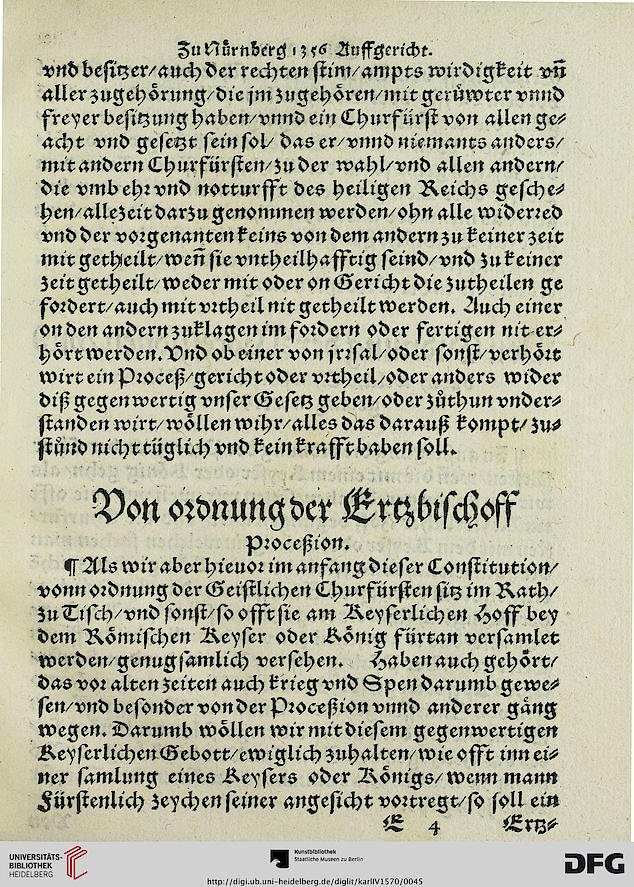 Zu Nürnberg 1356 Auffgericht.
vnd besitzer/auch der rechten stim/ampts wirdigkeit vñ
aller zugehörung/die jm zugehören/mit gerůwter vnnd
freyer besitzung haben/vnnd ein Churfürst von allen ge⸗
acht vnd gesetzt sein sol/ das er/vnnd niemants anders/
mit andern Churfürsten/zu der wahl/vnd allen andern/
die vmb ehr vnd notturfft des heiligen Reichs gesche⸗
hen/allezeit darzu genommen werden/ohn alle widerred
vnd der vorgenanten keins von dem andern zu keiner zeit
mit getheilt/weñ sie vntheilhafftig seind/vnd zu keiner
zeit getheilt/weder mit oder on Gericht die zutheilen ge
fordert/auch mit vrtheil nit getheilt werden. Auch einer
on den andern zuklagen im fordern oder fertigen nit er⸗
hört werden. Vnd ob einer von jrrsal/oder sonst/verhört
wirt ein Proceß/gericht oder vrtheil/oder anders wider
diß gegenwertig vnser Gesetz geben/oder zůthun vnder⸗
standen wirt/wöllen wihr/alles das darauß kompt/ zu⸗
stünd nicht tüglich vnd kein krafft haben soll.
Von ordnung der Ertzbischoff
Proceßion.
¶ Als wir aber hieuor im anfang dieser Constitution/
vonn ordnung der Geistlichen Churfürsten sitz im Rath/
zu Tisch/vnd sonst/so offt sie am Keyserlichen Hoff bey
dem Römischen Keyser oder König fürtan versamlet
werden/genugsamlich versehen. Haben auch gehört/
das vor alten zeiten auch krieg vnd Spen darumb gewe⸗
sen/vnd besonder von der Proceßion vnnd anderer gäng
wegen. Darumb wöllen wir mit diesem gegenwertigen
Keyserlichen Gebott/ewiglich zuhalten/wie offt inn ei⸗
ner samlung eines Keysers oder Königs/wenn mann
Fürstenlich zeychen seiner angesicht vortregt/so soll ein
E 4 Ertz⸗
UNIVERSITÄTS-
BIBLIOTHEK
HEIDELBERG
Kunstbibliothek
Staatliche Museen zu Berlin
DFG
http://digi.ub.uni-heidelberg.de/diglit/karlIV1570/0045